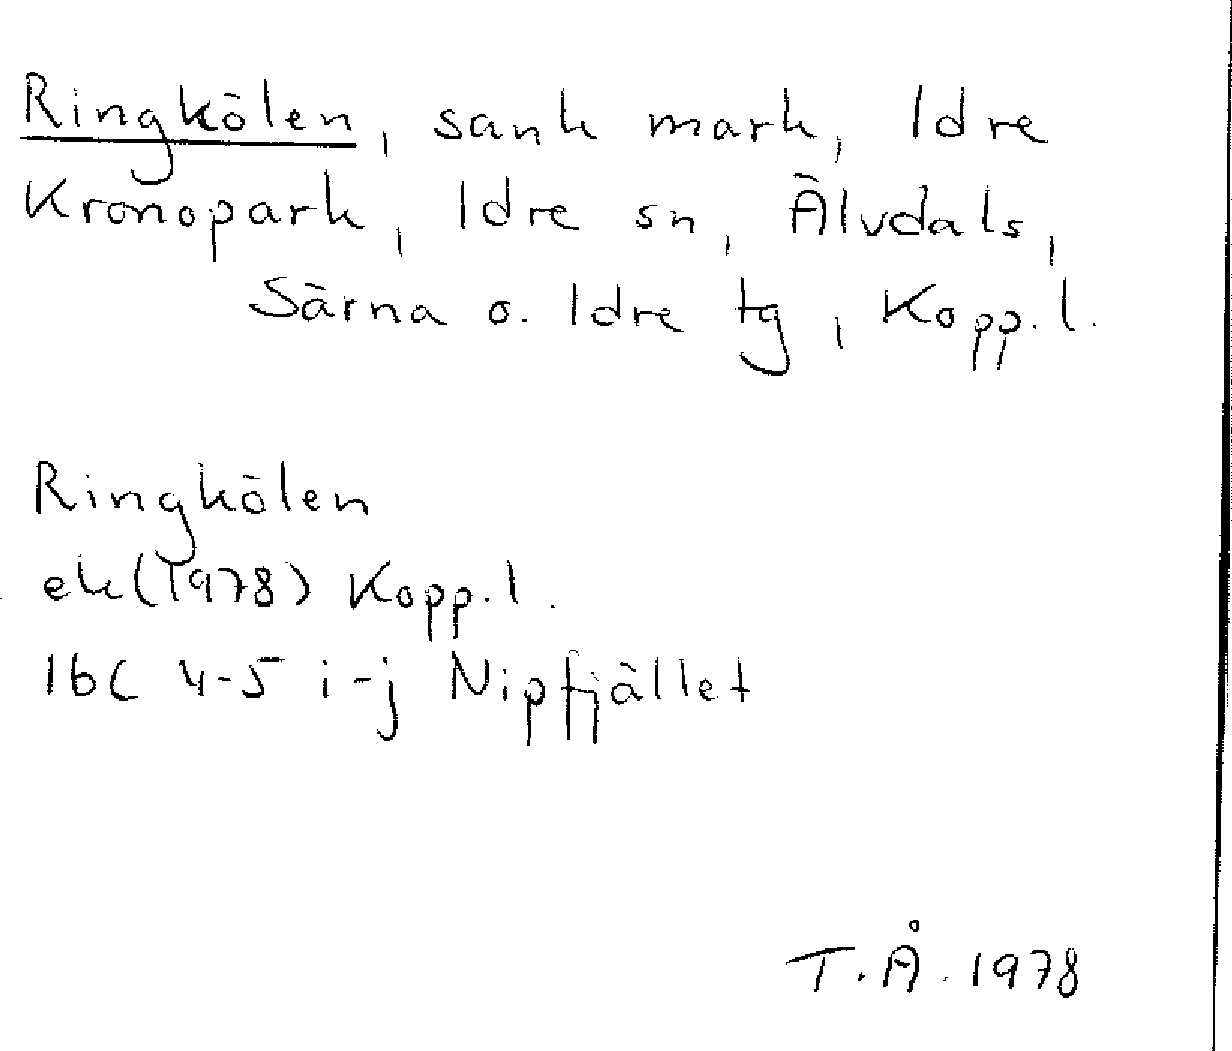 Ringkölen, sank mark, Idre
Kronopark, Idre sn, Älvdals,
Särna o. Idre tg, Kopp. l.
Ringkölen
ek (1978) Kopp. l.
16C 4-5 i-j Nipfjället
T. Å. 1978